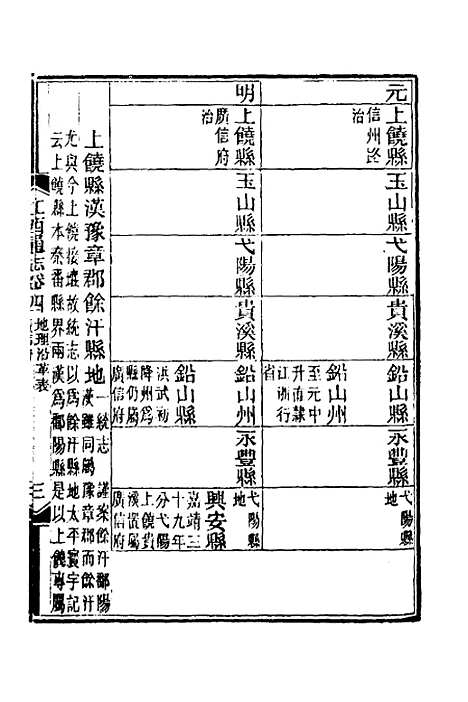 元
上饒縣
信州路
治
玉山縣
弋陽縣
貴溪縣
鉛山州
至元中
升直隸
江浙行
省
永豐縣
弋陽縣
地
明
上饒縣
廣信府
治
玉山縣
弋陽縣
貴溪縣
鉛山州
鉛山縣
洪武初
降州爲
縣仍屬
廣信府
永豐縣
弋陽縣
地
興安縣
嘉靖三
十九年
分弋陽
上饒貴
溪置屬
廣信府
上饒縣漢豫章郡餘汗縣地
一統志 謹案餘汗鄱陽
漢雖同屬豫章郡而餘汗
尤與今上饒接壤故統志以爲餘汗縣地太平寰宇記
云上饒縣本秦番縣界兩漢爲鄱陽縣是以上饒專屬
江西通志卷四 地理沿革表
三